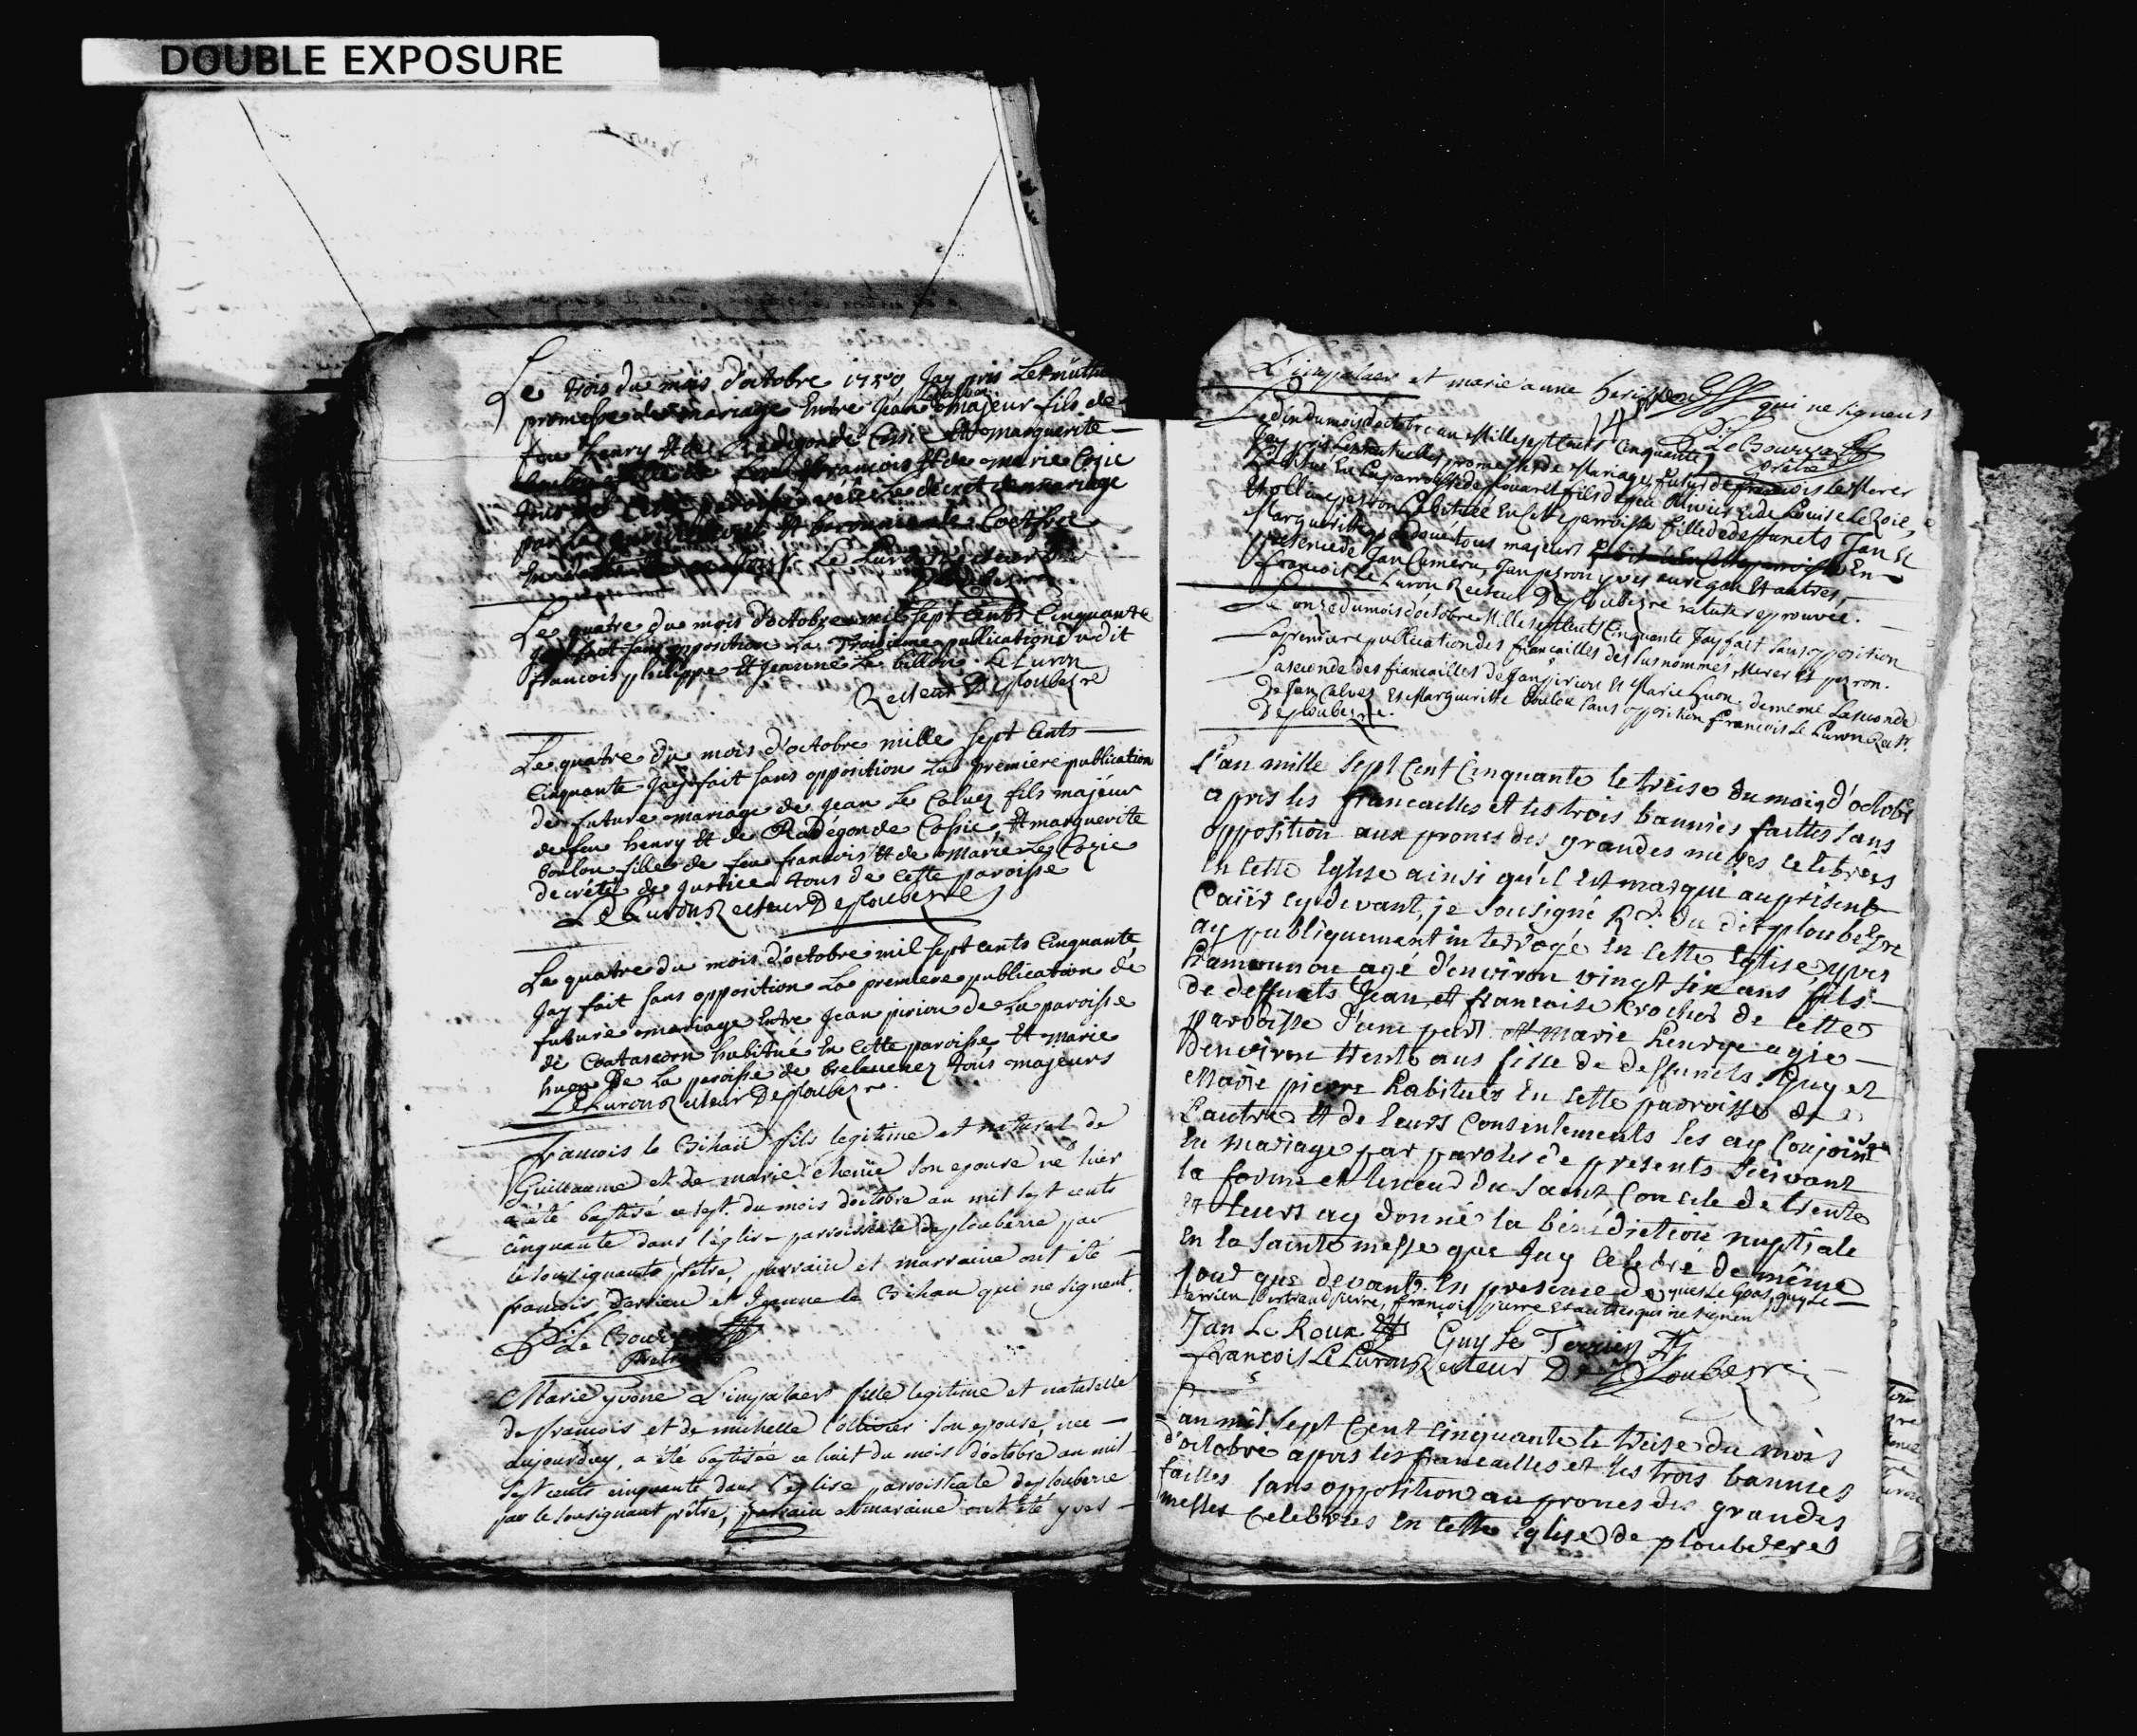 DOUBLE EXPOSURE
Le trois du mois d'octobre 1750 Jay pris Les
promesse de mariage Entre Jean Le Calvez majeur fils de
feu henry Et de Radegonde Cosic Et marguerite
feu francois Et de marie Cozic
tous de Cette paroisse le decret de mariage
par la
Le Luron Recteur
De Ploubezre
Le quatre du mois d'octobre mil sept cents Cinquante
Jay fait sans opposition La Troisieme publication dudit
francois philippe Et Jeanne Le billon. Le Luron
Recteur De ploubezre
Le quatre du mois d'octobre mille sept Cents
Cinquante Jay fait sans opposition La premiere publication
de future mariage de Jean Le Calvez fils majeur
de feu henry Et de Radégonde Cossic, Et marguerite
boulou fille de feu francois Et de Marie Le Cozic
decrété de justice tous de Cette paroisse
Le Luron Recteur De ploubezre
Le quatre du mois d'octobre mil sept cents Cinquante
Jay fait sans opposition La premiere publication de
future mariage Entre Jean piriou de La paroisse
de Coatascorn habitué En Cette paroisse, Et marie
huon De La paroisse de brelevenez tous majeurs
Le Luron Recteur De ploubezre.
francois le Bihan fils legitime et naturel de
Guillaume et de marie son epouse né hier
a été baptisé ce sept. du mois d'octobre an mil sept cents
cinquante dans l'église parroissiale de ploubezre par
le sousignant prêtre, parrain et marraine ont été
francois derrien et Jeanne le Bihan qui ne signent.
Le Bour
Prêtre
Marie yvone L'impalaer fille legitime et naturelle
de francois et de michelle Collivier son epouse, nee
aujourduy, a été baptisée ce huit du mois d'octobre an mil
sept cents cinquante dans l'église parroissiale de ploubezre
par le sousignant prêtre, parrain et maraine ont été yves
L'impalaer et marie anne qui ne signent
14 Le Bour
prêtre
Le dix du mois d'octobre an Mille sept Cents Cinquante
Jay pris Les mutuelles promesses de Mariage futur de francois Le Merer
de La parroisse de Plouaret fils de feu Olivier Et de Louise Le Roie,
Et peron habituée En Cette parroisse fille de deffuncts Jan Et
Margueritte tous majeurs En
presence de Jan Jan peron yves Et autres,
francois Le Luron Recteur De Ploubezre rature reprouvée.
Le onze du mois d'octobre Mille sept Cents Cinquante Jay fait sans opposition
La premiere publication des fiançailles des susnommés Merer Et peron.
La seconde des fiançailles de Jan piriou Et Marie Huon. de meme La seconde
De Jan Calvez Et Margueritte boulou sans opposition francois Le Luron Rectr.
De ploubezre.
L'an mille Sept Cent Cinquante le treise du mois d'octobre
apris les francailles et les trois bannies faittes sans
opposition aux prones des grandes messes celebrées
En cette Eglise ainsi qu'il Est marqué au present
Caiier cy devant, je sousigné Rr. du dit ploubezre
ay publiquement interrogé En cette Eglise, yves
agé d'environ vingt six ans fils
de deffuncts Jean et francoise de Cette
parroisse d'une part Et Marie agée
d'environ trente ans fille de deffuncts Guy et
Marie pierre habitués En Cette parroisse de
L'autre Et de leurs Consentements les ay Conjoints
En mariage par paroles de presents suivant
la forme et teneur du saint Concile de trente
Et leurs ay donné la bénédiction nuptiale
En la sainte messe que Jay Celebré de même
jour que devant. En presence de yves Le Goas, Guy Le
Terrien Bertrand pierre, françois pierre Et autres qui ne signent
Jan Le Roux Guy Le Terrien
françois Le Luron Recteur De Ploubezre
L'an mil sept Cent Cinquante le treise du mois
d'octobre apris les francailles et les trois bannies
failles sans opposition au prones des grandes
messes celebrées En cette Eglise de ploubezre